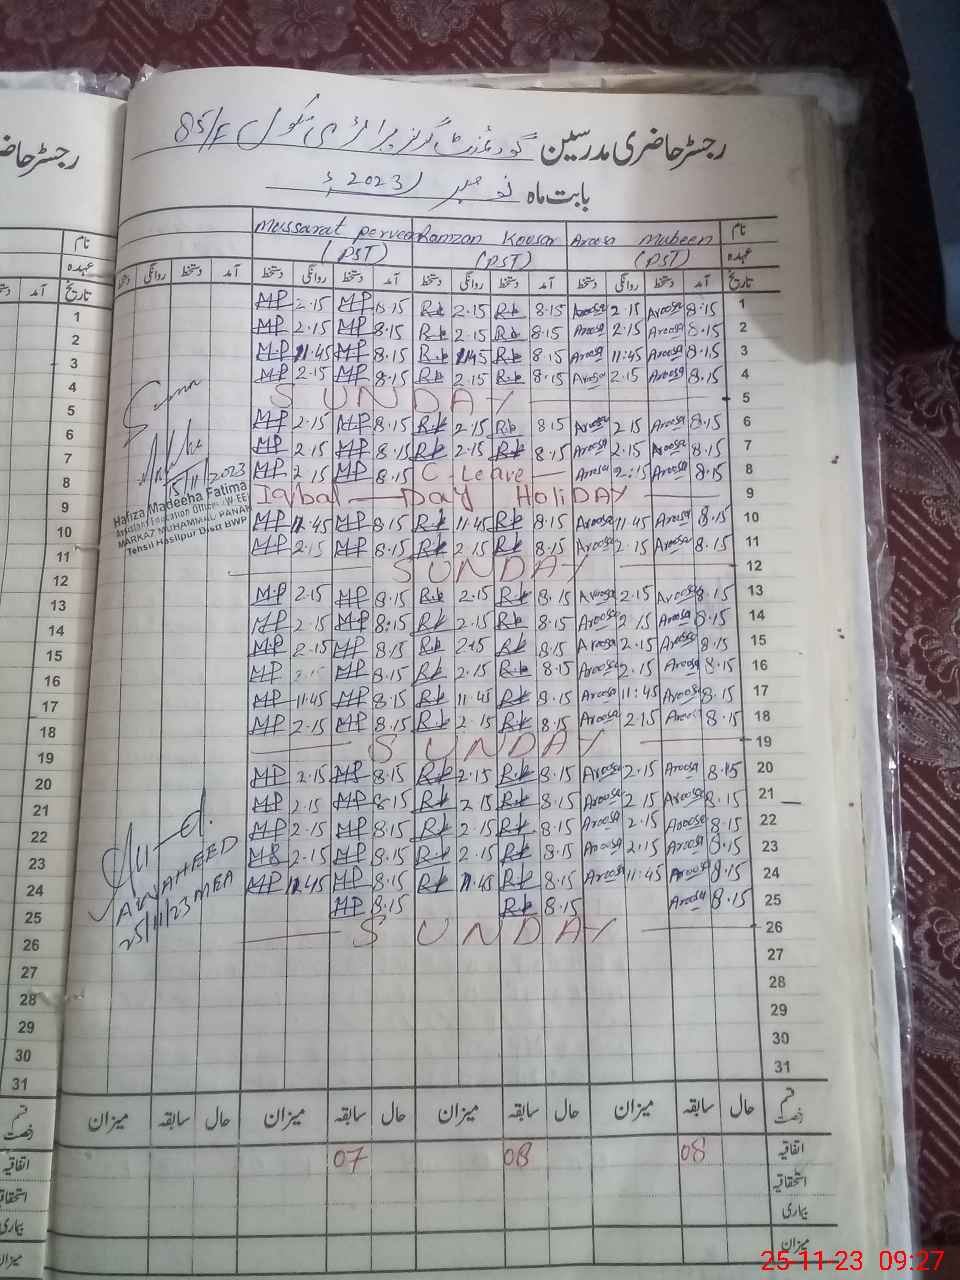 رجسٹر حاضری مدرسین گورنمنٹ گرلز پرائمری سکول 85/F
بابت ماہ نومبر 2023ء
نام Aroosa Mubeen Ramzan Kousar Mussarat perveen
عہدہ (PST) (PST) (PST)
تاریخ آمد دستخط روانگی دستخط آمد دستخط روانگی دستخط آمد دستخط روانگی دستخط آمد دستخط روانگی دستخط
MP 2.15 MP 8.15 Rk 2.15 Rk 8.15 Aroosa 2.15 Aroosa 8.15 1
MP 2.15 MP 8.15 Rk 2.15 Rk 8.15 Aroosa 2.15 Aroosa 8.15 2
MP 11.45 MP 8.15 Rk 11.45 Rk 8.15 Aroosa 11:45 Aroosa 8.15 3
MP 2.15 MP 8.15 Rk 2.15 Rk 8.15 Aroosa 2.15 Aroosa 8.15 4
SUNDAY 5
MP 2.15 MP 8.15 Rk 2.15 Rk 8.15 Aroosa 2.15 Aroosa 8.15 6
MP 2.15 MP 8.15 Rk 2.15 Rk 8.15 Aroosa 2.15 Aroosa 8.15 7
MP 2.15 MP 8.15 C-Leave Aroosa 2:15 Aroosa 8.15 8
Iqbal Day HoliDAY 9
MP 11.45 MP 8.15 Rk 11.45 Rk 8.15 Aroosa 11.45 Aroosa 8.15 10
MP 2.15 MP 8.15 Rk 2.15 Rk 8.15 Aroosa 2.15 Aroosa 8.15 11
SUNDAY 12
MP 2.15 MP 8.15 Rk 2.15 Rk 8.15 Aroosa 2.15 Aroosa 8.15 13
MP 2.15 MP 8:15 Rk 2.15 Rk 8.15 Aroosa 2.15 Aroosa 8.15 14
MP 2.15 MP 8.15 Rk 2.15 Rk 8.15 Aroosa 2.15 Aroosa 8.15 15
MP 2.15 MP 8.15 Rk 2.15 Rk 8.15 Aroosa 2.15 Aroosa 8.15 16
MP 11.45 MP 8.15 Rk 11.45 Rk 8.15 Aroosa 11:45 Aroosa 8.15 17
MP 2.15 MP 8.15 Rk 2.15 Rk 8.15 Aroosa 2.15 Aroosa 8.15 18
SUNDAY 19
MP 2.15 MP 8.15 Rk 2.15 Rk 8.15 Aroosa 2.15 Aroosa 8.15 20
MP 2.15 MP 8.15 Rk 2.15 Rk 8.15 Aroosa 2.15 Aroosa 8.15 21
MP 2.15 MP 8.15 Rk 2.15 Rk 8.15 Aroosa 2.15 Aroosa 8.15 22
MP 2.15 MP 8.15 Rk 2.15 Rk 8.15 Aroosa 2.15 Aroosa 8.15 23
MP 11.45 MP 8.15 Rk 11.45 Rk 8.15 Aroosa 11.45 Aroosa 8.15 24
MP 8.15 Rk 8.15 Aroosa 8.15 25
SUNDAY 26
27
28
29
30
31
قسم رخصت حال سابقہ میزان حال سابقہ میزان حال سابقہ میزان حال سابقہ میزان
اتفاقیہ 08 08 07
استحقاقیہ
بیماری
میزان
15/11/2023
Hafiza Madeeha Fatima
Assistant Education Officer (W-EE)
MARKAZ MUHAMMAD PANAH
Tehsil Hasilpur Distt BWP
A.WAHEED
25/11/23 MEA
رجسٹر حاضری
نام
عہدہ
تاریخ آمد
1
2
3
4
5
6
7
8
9
10
11
12
13
14
15
16
17
18
19
20
21
22
23
24
25
26
27
28
29
30
31
قسم رخصت
اتفاقیہ
استحقاقیہ
بیماری
میزان
25-11-23 09:27